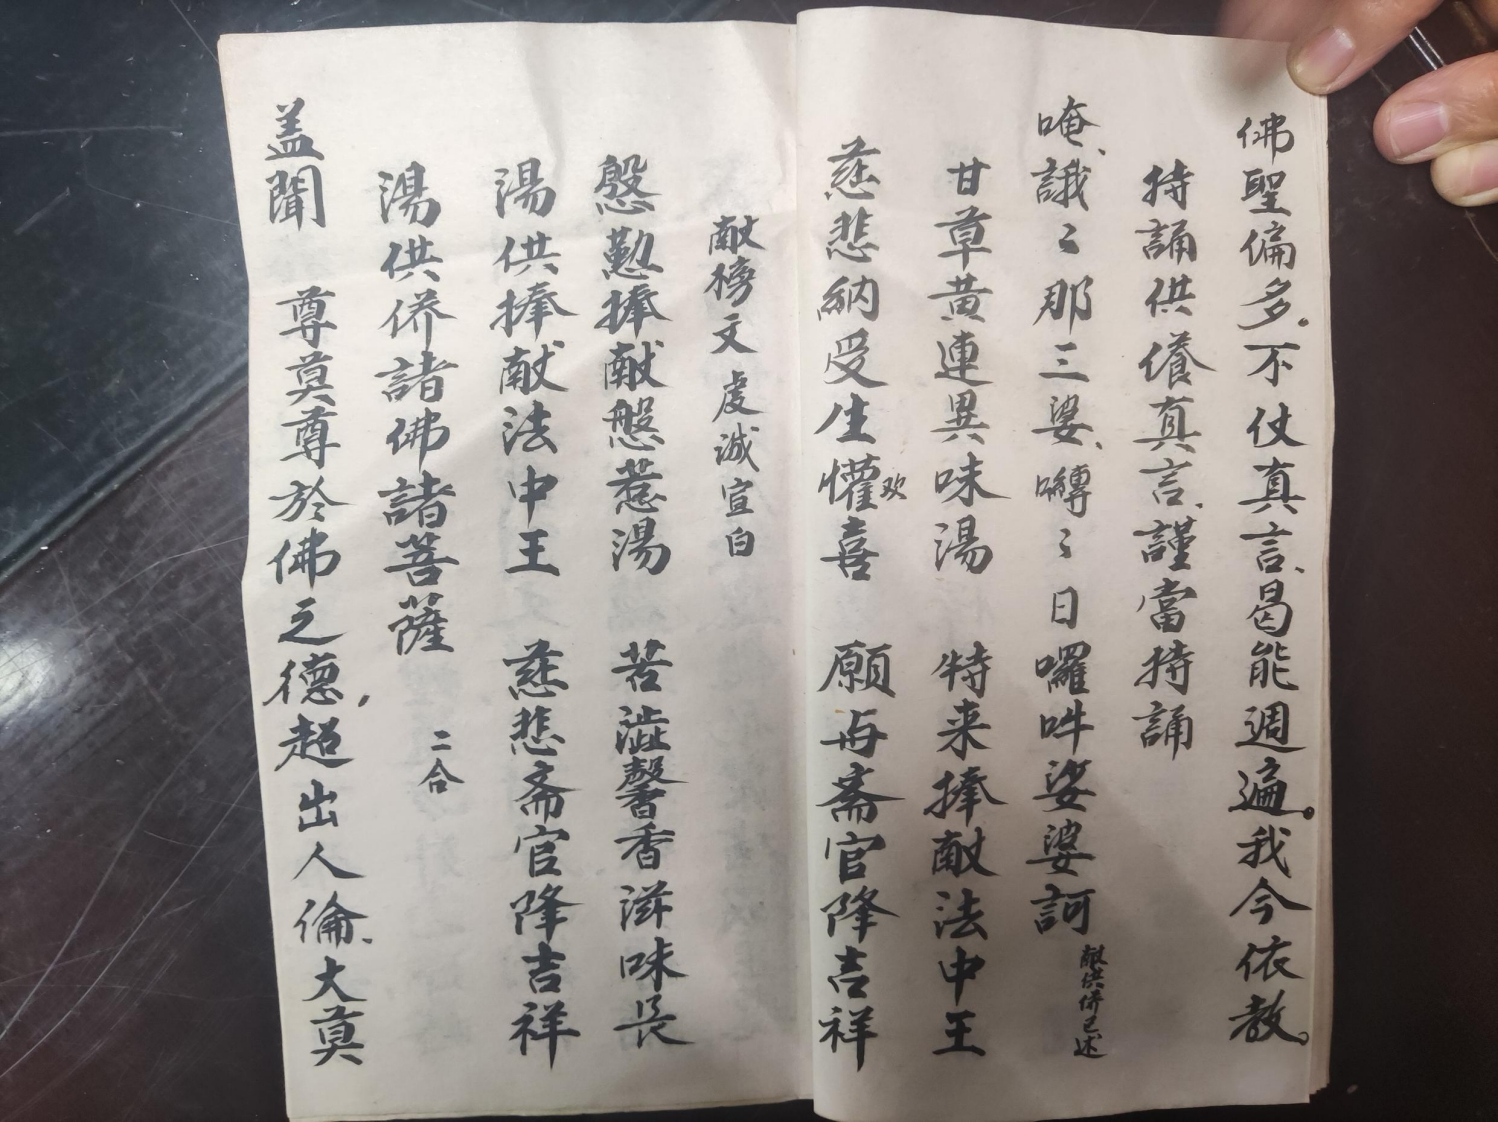 佛聖偏多.不仗真言、曷能週遍。我今依教。
持誦供養真言、謹當持誦
唵、誐〻那三婆、嚩〻日囉吽娑婆訶
献供侨已述
甘草黄連異味湯　特来捧献法中王
慈悲納受生懽喜　願与斋官降吉祥
欢
献榜文　虔诚宣白
慇懃捧献慇惹湯　苦澁馨香滋味長
湯供捧献法中王　慈悲斋官降吉祥
湯供侨諸佛諸菩薩　二合
盖聞　尊莫尊於佛之德，超出人倫、大莫